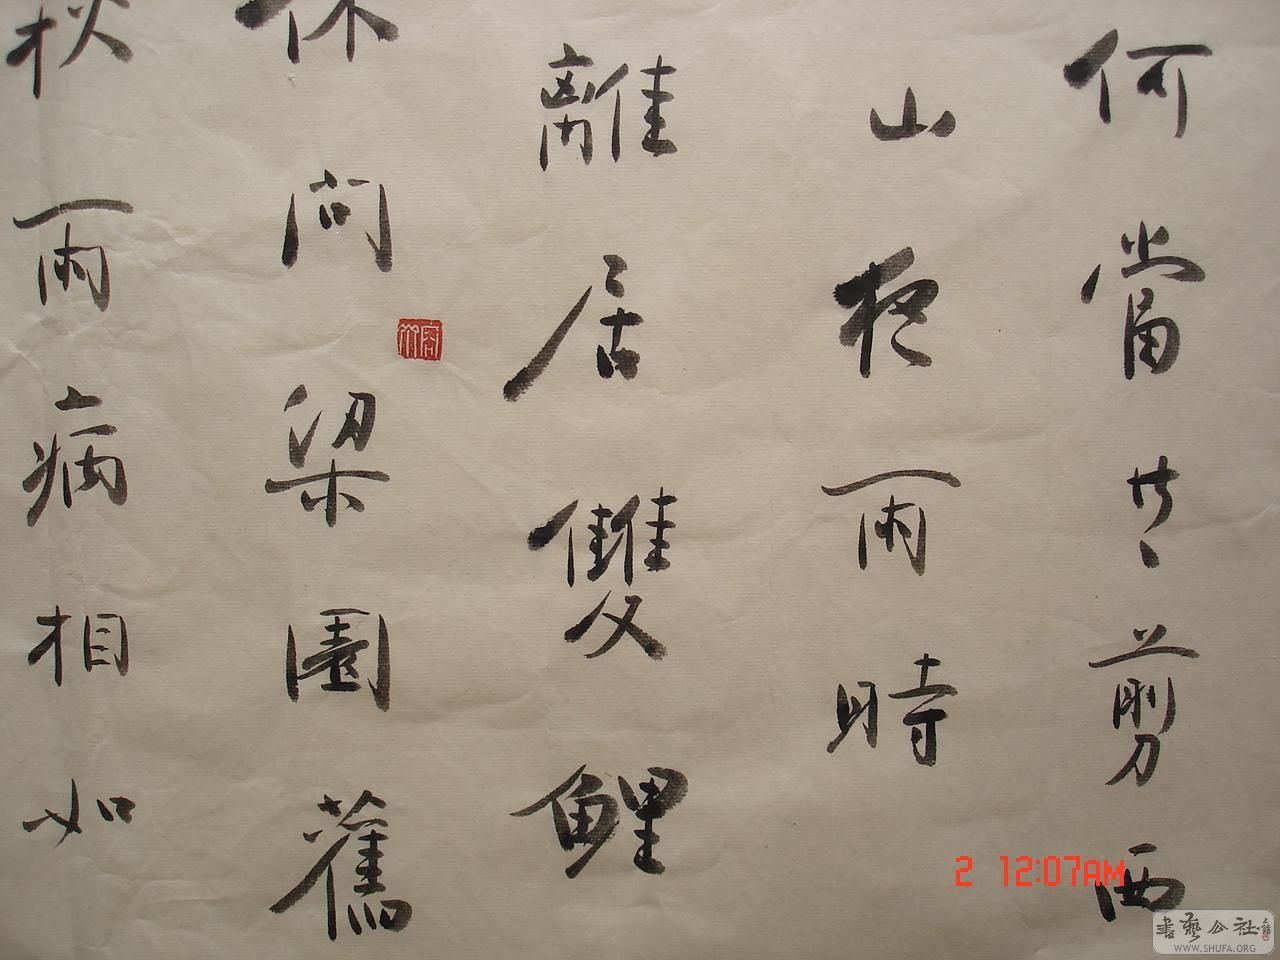 何當共剪西
山夜雨時
離居雙鯉
休問梁園舊
秋雨病相如
2 12:07AM
書藝公社
WWW.SHUFA.ORG